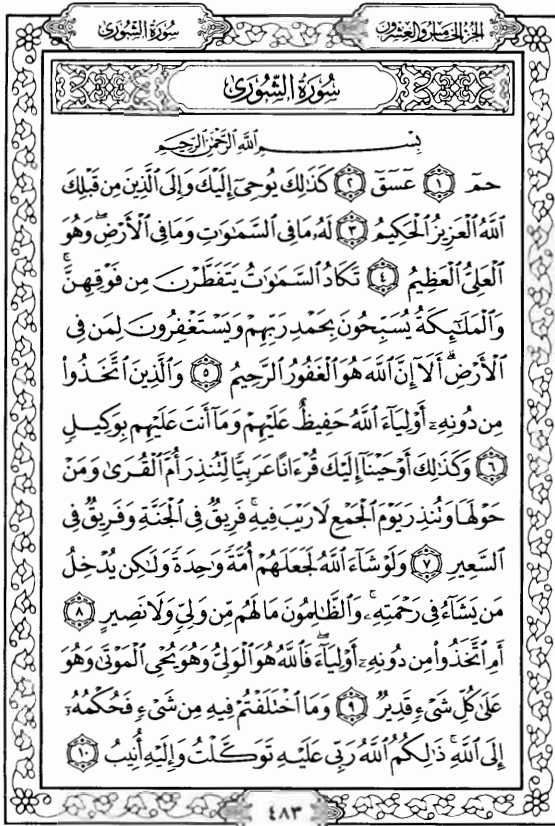 سُورَةُ الشُّورَىٰ
الجُزْءُ الخَامِسُ وَالعِشْرُونَ
سُورَةُ الشُّورَىٰ
بِسْمِ اللَّهِ الرَّحْمَٰنِ الرَّحِيمِ
حمٓ ١ عٓسٓقٓ ٢ كَذَٰلِكَ يُوحِىٓ إِلَيْكَ وَإِلَى الَّذِينَ مِن قَبْلِكَ
اللَّهُ الْعَزِيزُ الْحَكِيمُ ٣ لَهُۥ مَا فِى السَّمَٰوَٰتِ وَمَا فِى الْأَرْضِ ۖ وَهُوَ
الْعَلِىُّ الْعَظِيمُ ٤ تَكَادُ السَّمَٰوَٰتُ يَتَفَطَّرْنَ مِن فَوْقِهِنَّ ۚ
وَالْمَلَٰٓئِكَةُ يُسَبِّحُونَ بِحَمْدِ رَبِّهِمْ وَيَسْتَغْفِرُونَ لِمَن فِى
الْأَرْضِ ۗ أَلَآ إِنَّ اللَّهَ هُوَ الْغَفُورُ الرَّحِيمُ ٥ وَالَّذِينَ اتَّخَذُوا۟
مِن دُونِهِۦٓ أَوْلِيَآءَ اللَّهُ حَفِيظٌ عَلَيْهِمْ وَمَآ أَنتَ عَلَيْهِم بِوَكِيلٍ
٦ وَكَذَٰلِكَ أَوْحَيْنَآ إِلَيْكَ قُرْءَانًا عَرَبِيًّا لِّتُنذِرَ أُمَّ الْقُرَىٰ وَمَنْ
حَوْلَهَا وَتُنذِرَ يَوْمَ الْجَمْعِ لَا رَيْبَ فِيهِ ۚ فَرِيقٌ فِى الْجَنَّةِ وَفَرِيقٌ فِى
السَّعِيرِ ٧ وَلَوْ شَآءَ اللَّهُ لَجَعَلَهُمْ أُمَّةً وَٰحِدَةً وَلَٰكِن يُدْخِلُ
مَن يَشَآءُ فِى رَحْمَتِهِۦ ۚ وَالظَّٰلِمُونَ مَا لَهُم مِّن وَلِىٍّ وَلَا نَصِيرٍ ٨
أَمِ اتَّخَذُوا۟ مِن دُونِهِۦٓ أَوْلِيَآءَ ۖ فَاللَّهُ هُوَ الْوَلِىُّ وَهُوَ يُحْىِ الْمَوْتَىٰ وَهُوَ
عَلَىٰ كُلِّ شَىْءٍ قَدِيرٌ ٩ وَمَا اخْتَلَفْتُمْ فِيهِ مِن شَىْءٍ فَحُكْمُهُۥٓ
إِلَى اللَّهِ ۚ ذَٰلِكُمُ اللَّهُ رَبِّى عَلَيْهِ تَوَكَّلْتُ وَإِلَيْهِ أُنِيبُ ١٠
٤٨٣